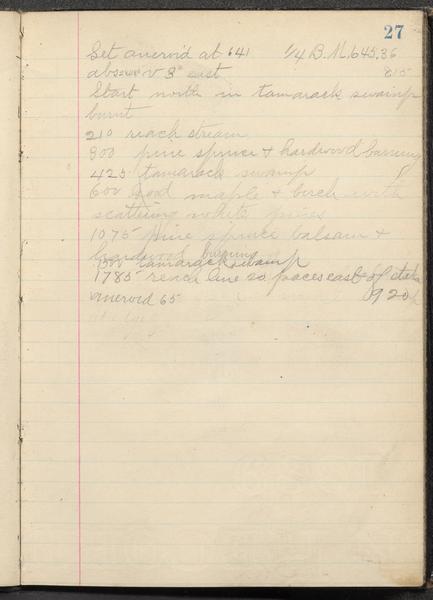 27
Set aneroid at 641 1/4 B.M. 645.36
abs V 3° east 815
Start north in tamarack swamp
burnt
210 reach stream
300 pine spruce & hardwood burning
425 tamarack swamp
600 good maple & birch with
scattering white pines
1075 pine spruce balsam &
hardwood burning
1500 tamarack swamp
1785 reach line 20 paces east of stake
aneroid 65 920